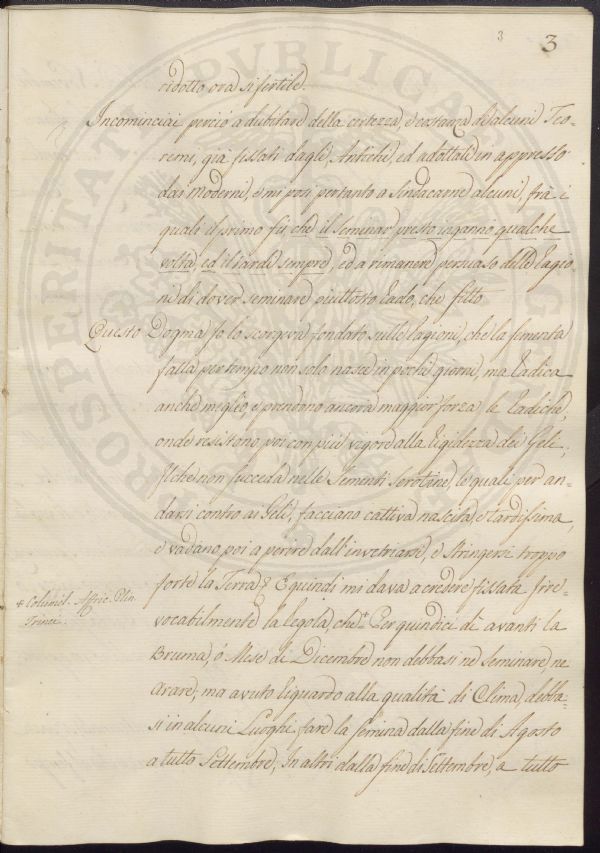 3 3
ridotto ora si fertile.
Incominciai perciò a dubitare della certezza, e costanza di alcuni Teo=
remi, già fissati dagli Antichi, ed adottati in appresso
dai Moderni, e mi posi pertanto a Sindacarne alcuni, frà i
quali il primo fù, che il Seminar presto inganni qualche
volta, ed il tardi sempre, ed a rimanere persuaso delle Ragio=
ni di dover Seminare piuttosto Rado, che fitto.
Questo Dogma Io lo scorgeva fondato sulle Ragioni, che la Sementa
fatta per tempo non solo nasce in pochi giorni, ma Radica
anche meglio, e prendono ancora maggior forza le Radiche,
onde resistono poi con più vigore alla Rigidezza dei Geli;
Il che non succeda nelle Sementi Serotine, le quali per an=
darsi contro ai Geli, facciano cattiva nascita, e tardissima,
e vadano poi a perire dall'invetriarsi, e Stringersi troppo
forte la Terra; E quindi mi dava a credere fissata Irre=
vocabilmente la Regola, che + Per quindici dì avanti la
+ Colúmel. Affric. Plin
Trinci.
Bruma, ò Mese di Dicembre non debbasi nè Seminare, ne
Arare; ma avuto Riguardo alla qualità di Clima, debba=
si in alcuni Luoghi fare la Semina dalla fine di Agosto
a tutto Settembre; In altri dalla fine di Settembre, a tutto
PROSPERITATI PUBLICAE